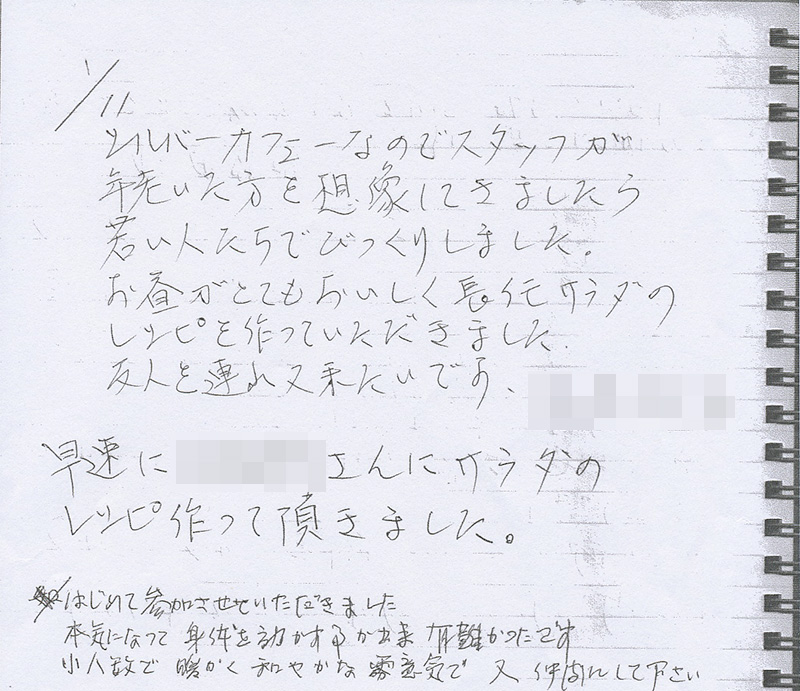 1/11
シルバーカフェーなのでスタッフが
年老いた方を想像してきましたら
若い人たちでびっくりしました。
お昼がとてもおいしく長イモサラダの
レシピを作っていただきました。
友人を連れ又来たいです、
早速に さんにサラダの
レシピ作って頂きました。
はじめて参加させていただきました
本気になって身体を動かする が出来 有難かったです
小人数で 暖かく 和やかな 雰意気で 又 仲間にして下さい